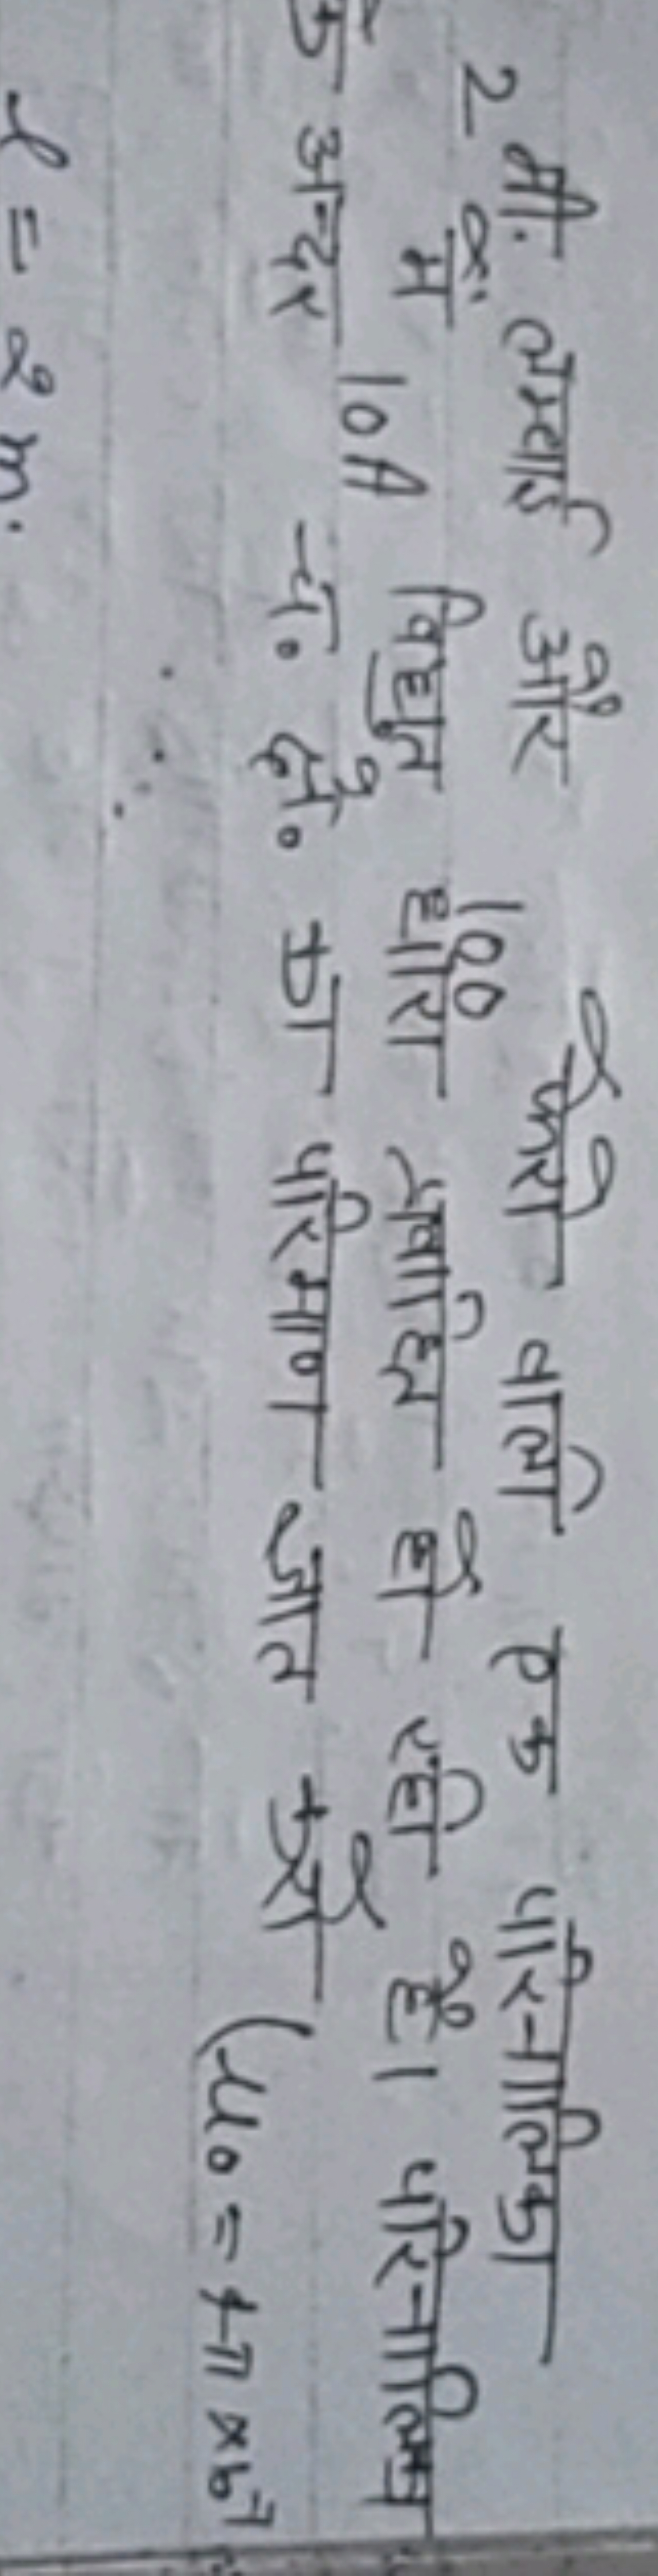 2 मी. लम्बाई और 100 फेरो वाली एक परिनालिका
में 10A विद्युत धारा प्रवाहित हो रही है। परिनालिका
के अन्दर चु. क्षे. का परिमाण ज्ञात करो (μ₀ = 4π × 10⁻⁷
l = 2 m.